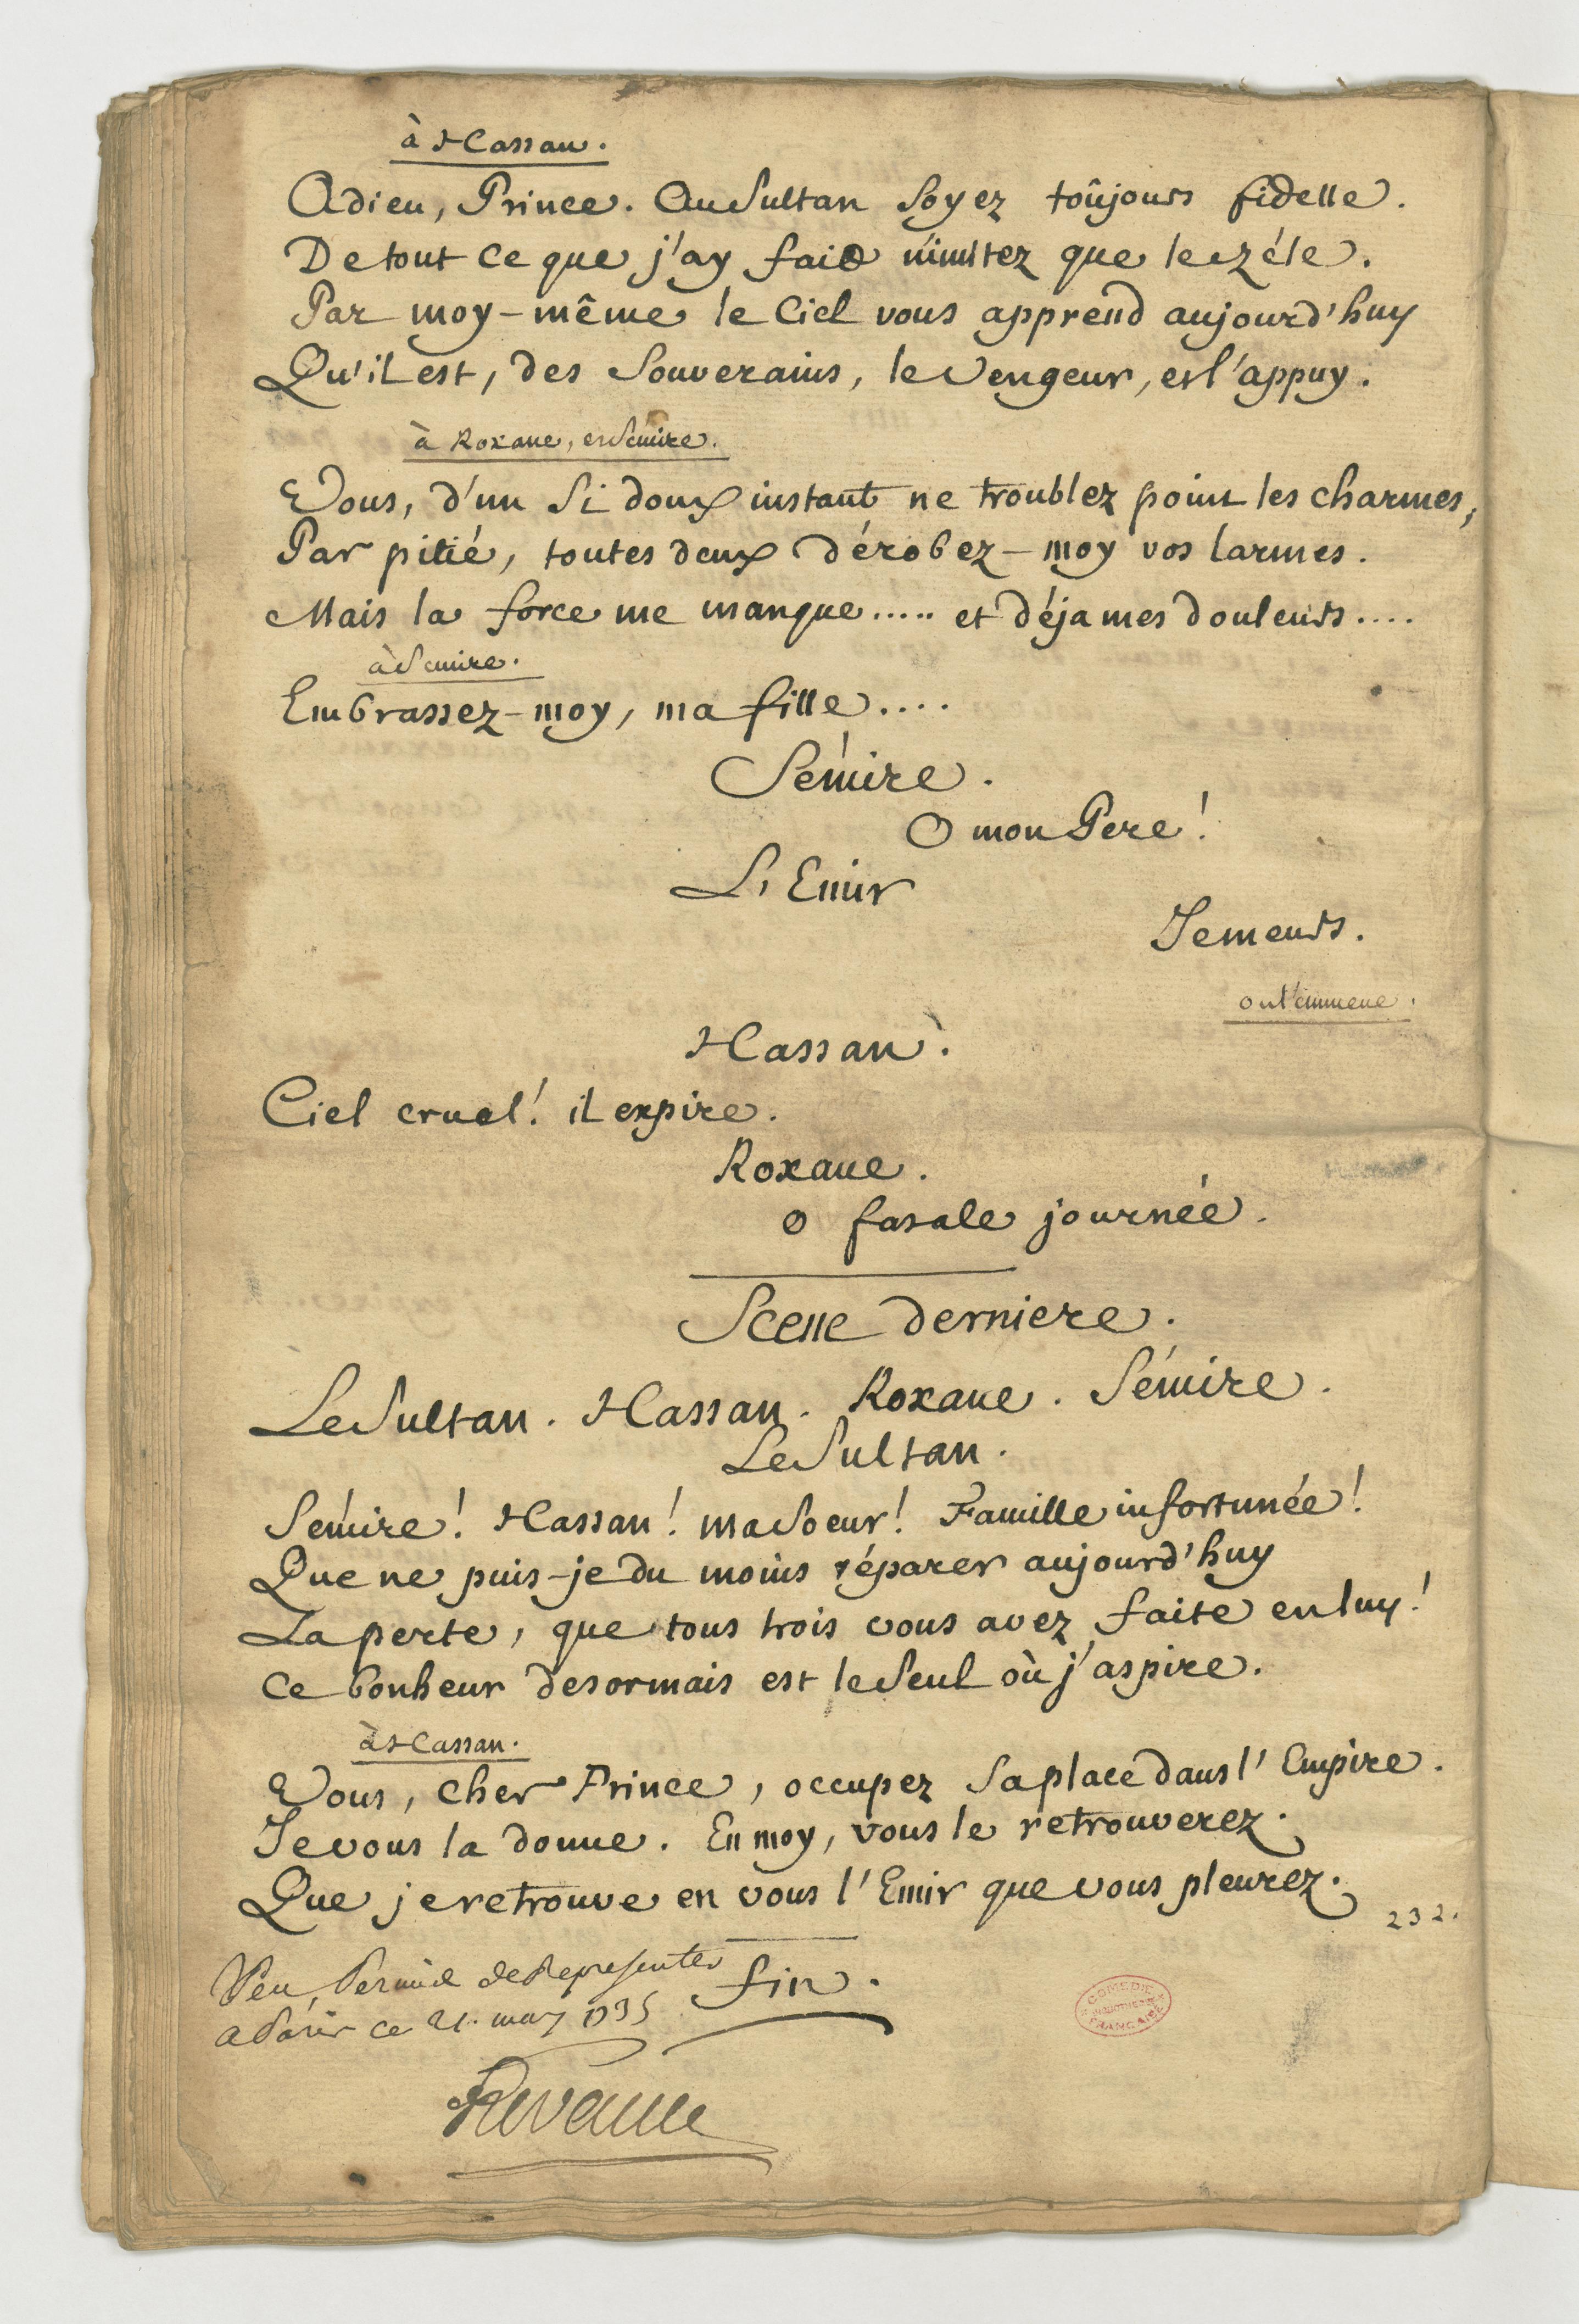 à Hassan.
Adieu, Prince. Au Sultan soyez toûjours fidelle.
De tout ce que j'ay fait n'imitez que le zéle.
Par moy-même le Ciel vous apprend aujourd'huy
Qu'il est, des Souverains, le vengeur, et l'appuy.
à Roxane, et Sémire.
Vous, d'un si doux instant ne troublez point les charmes,
Par pitié, toutes deux dérobez-moy vos larmes.
Mais la force me manque..... et déja mes douleurs....
à Semire.
Embrassez-moy, ma fille....
Sémire.
O mon Pere!
L'Emir
Je meurs.
on l'emmene.
Hassan.
Ciel cruel! il expire.
Roxane.
O fatale journée.
Scene derniere.
Le Sultan. Hassan. Roxane. Sémire.
Le Sultan.
Sémire! Hassan! ma Soeur! Famille infortunée!
Que ne puis-je du moins réparer aujourd'huy
La perte, que tous trois vous avez faite en luy!
Ce bonheur desormais est le seul où j'aspire.
à Hassan.
Vous, cher Prince, occupez sa place dans l'Empire.
Je vous la donne. En moy, vous le retrouverez.
Que je retrouve en vous l'Emir que vous pleurez.
232.
fin.
Veu, Permis de Representer
a Paris ce 21. may 1735
COMEDIE FRANÇAISE